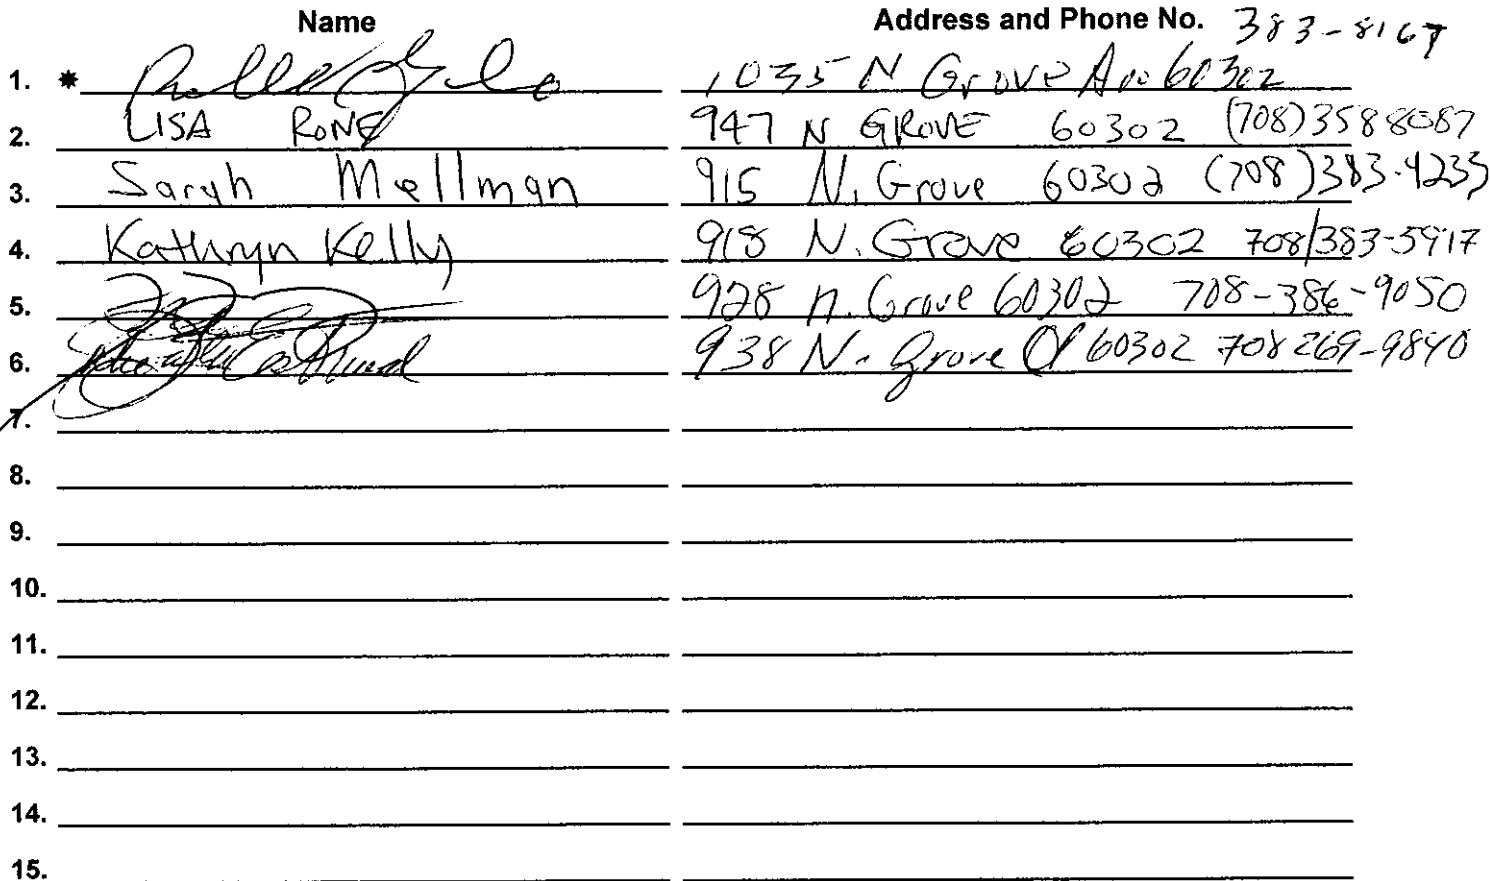 Name Address and Phone No. 383-8167
1. * 1035 N Grove Ave 60302
2. LISA RONE 947 N GROVE 60302 (708)3588087
3. Sarah Mellman 915 N. Grove 60302 (708)383-4233
4. Kathryn Kelly 918 N. Grove 60302 708/383-5917
5. 928 N. Grove 60302 708-386-9050
6. 938 N. Grove 60302 708 269-9840
7.
8.
9.
10.
11.
12.
13.
14.
15.